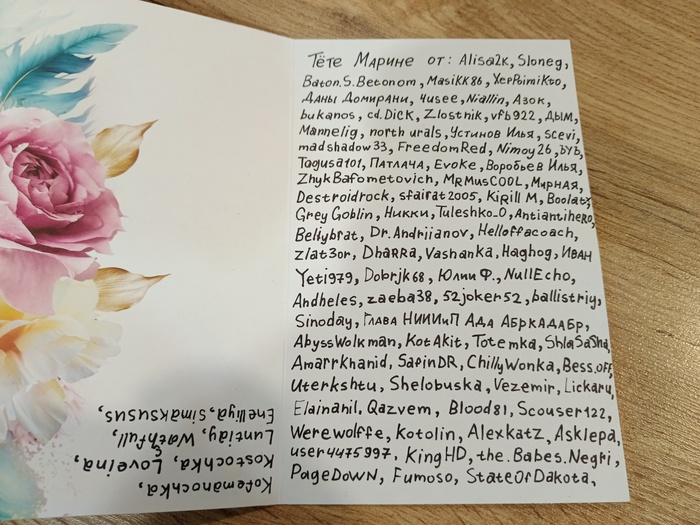 Тёте Марине от: Alisa2k, Sloneg,
Baton.S.Betonom, MasiKK86, ХерPoimiKto,
Даны Домирани, 4usee, Niallin, Азок,
bukanos, cd.DiCK, Zlostnik, vfb922, ДЫМ,
Mannelig, north urals, Устинов Илья, scevi,
madshadow33, FreedomRed, Nimoy26, bYb,
Tagusa101, ПАТЛАЧА, Evoke, Воробьев Илья,
ZhykBafometovich, MRMusCOOL, Мирная,
Destroidrock, sfairat2005, Kirill M, Boolatz,
Grey Goblin, Никки, Tuleshko_O, Antiantihero,
Bellybrat, Dr.Andriianov, Helloffacoach,
Zlat3or, Dharra, Vashanka, Haghog, Иван
Yeti979, Dobrjk68, Юлии Ф., NullEcho,
Andheles, zaeba38, 52joker52, ballistriy,
Sinoday, Глава НИИИиП Ада Абркадабр,
AbyssWolkman, KotAkit, Totemka, ShlaSaSha,
Amarrkhanid, SafinDR, ChillyWonka, Bess.off,
Uterkshtu, Shelobuska, Vezemir, Lickaru,
Elainahil, Qazvem, Blood81, Scouser122,
Werewolffe, Kotolin, Alexkatz, Asklepa,
user4475997, KingHD, the.Babes.Negri,
PageDown, Fumoso, StateOfDakota,
Kofemanochka,
Kostochka, Loveina,
Luntiay, Wathfull,
Enelliya, simaksusus,